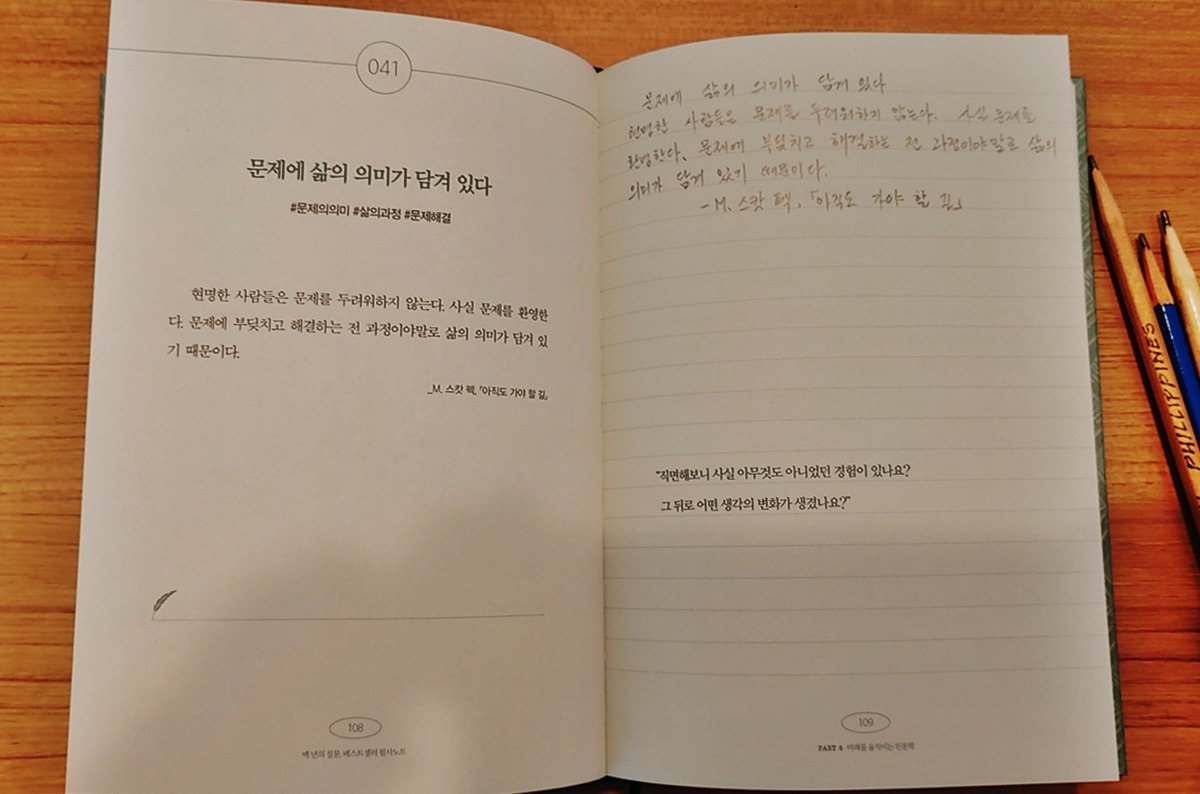 041
문제에 삶의 의미가 담겨 있다
#문제의의미 #삶의과정 #문제해결
현명한 사람들은 문제를 두려워하지 않는다. 사실 문제를 환영한
다. 문제에 부딪치고 해결하는 전 과정이야말로 삶의 의미가 담겨 있
기 때문이다.
_M. 스캇 펙, 「아직도 가야 할 길」
108
백 년의 질문, 베스트셀러 필사노트
문제에 삶의 의미가 담겨 있다
현명한 사람들은 문제를 두려워하지 않는다. 사실 문제를
환영한다. 문제에 부딪치고 해결하는 전 과정이야말로 삶의
의미가 담겨 있기 때문이다.
-M. 스캇 펙, 「아직도 가야 할 길」
"직면해보니 사실 아무것도 아니었던 경험이 있나요?
그 뒤로 어떤 생각의 변화가 생겼나요?"
109
PART 6 미래를 움직이는 인문학
PHILIPPINES